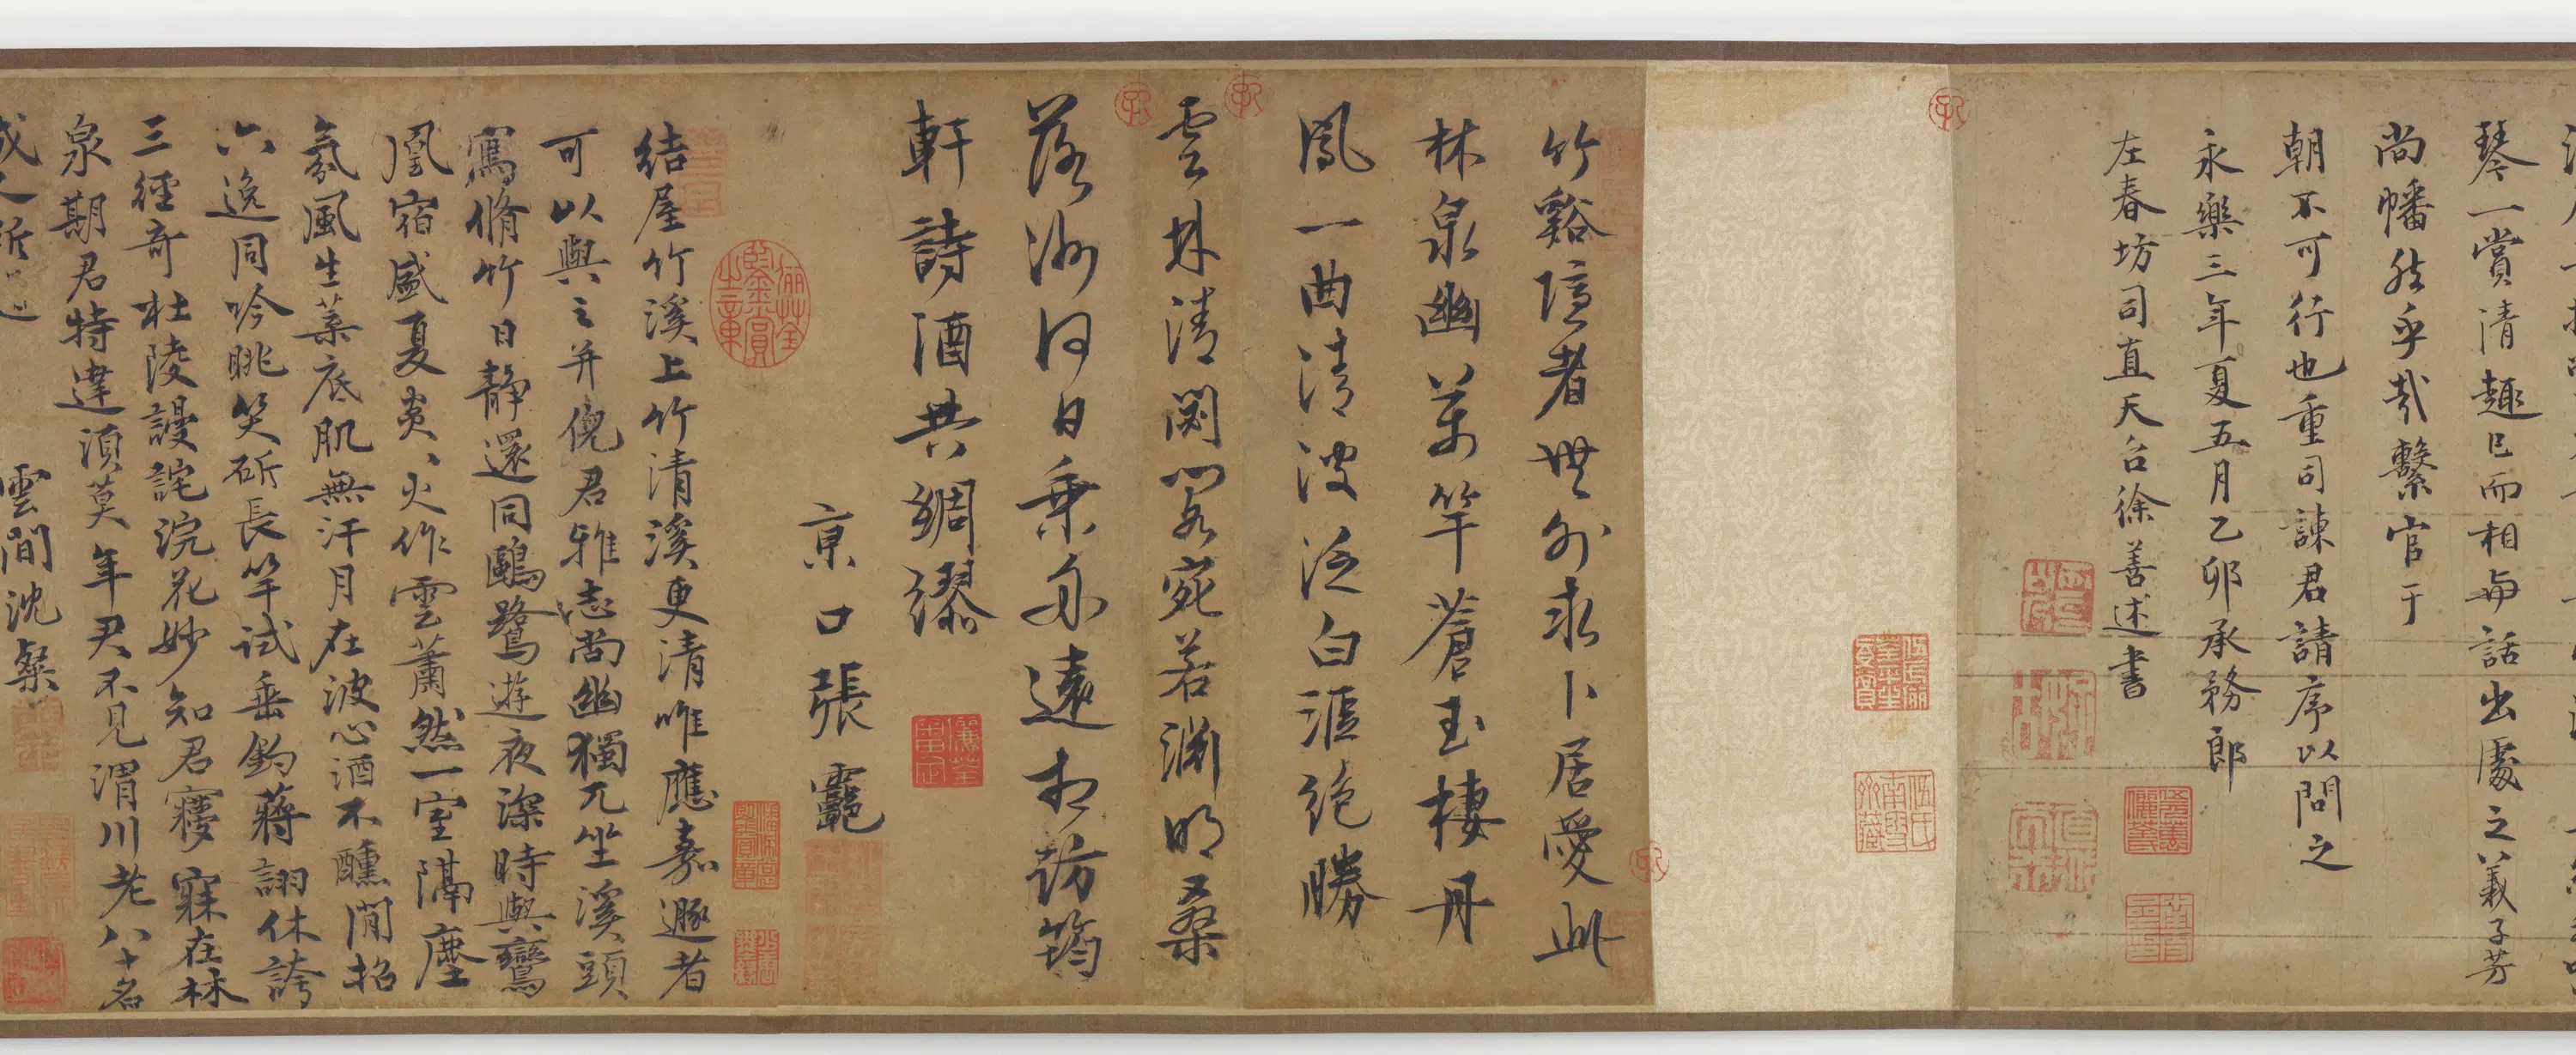 琴一賞清趣已而相與話出處之義子芳
尚幡然乎哉繫官于
朝不可行也重司諫君請序以問之
永樂三年夏五月乙卯承務郎
左春坊司直天台徐善述書
竹谿隱者世外求卜居愛此
林泉幽萬竿蒼玉棲丹
鳳一曲清波泛白漚絶勝
雲林清閟閣宛若淵明桑
落洲何日乘舟遠相訪筠
軒詩酒共綢繆
京口張靄
結屋竹溪上竹清溪更清唯應嘉遯者
可以與之并倪君雅志尚幽獨兀坐溪頭
寫脩竹日靜還同鷗鷺遊夜深時與鸞
凰宿盛夏炎火作雲蕭然一室隔塵
氛風生葉底肌無汗月在波心酒不醺閒招
六逸同吟眺笑斫長竿試垂釣蔣詡休誇
三徑奇杜陵謾詫浣花妙知君寤寐在林
泉期君特達須莫年君不見渭川老八十名
成
雲間沈粲